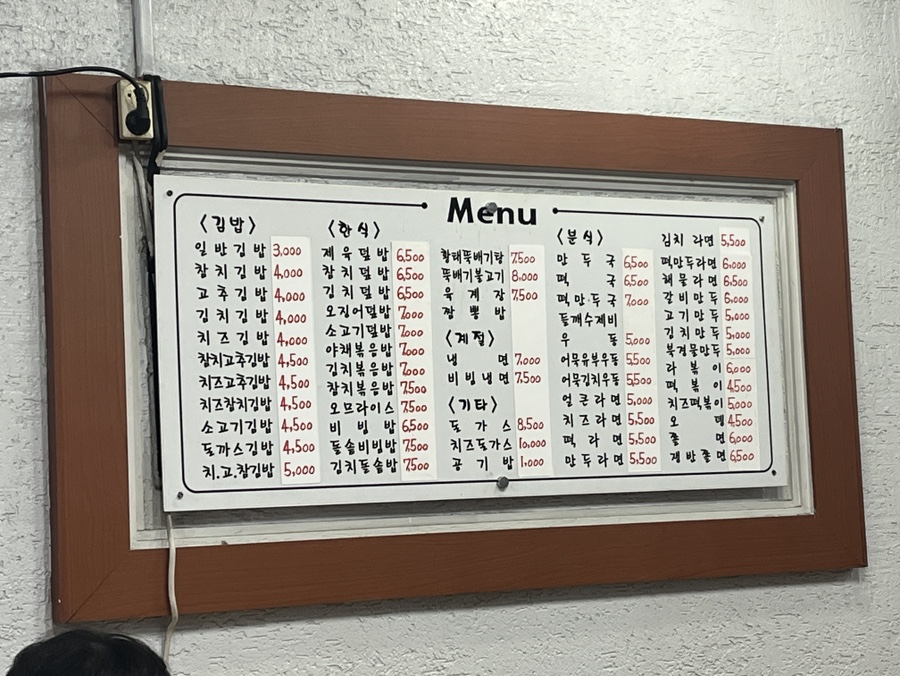 Menu
〈김밥〉
일반김밥 3,000
참치김밥 4,000
고추김밥 4,000
김치김밥 4,000
치즈김밥 4,000
참치고추김밥 4,500
치즈고추김밥 4,500
치즈참치김밥 4,500
소고기김밥 4,500
돈까스김밥 4,500
치.고.참김밥 5,000
〈한식〉
제육덮밥 6,500
참치덮밥 6,500
김치덮밥 6,500
오징어덮밥 7,000
소고기덮밥 7,000
야채볶음밥 7,000
김치볶음밥 7,000
참치볶음밥 7,500
오므라이스 7,500
비빔밥 6,500
돌솥비빔밥 7,500
김치돌솥밥 7,500
황태뚝배기탕 7,500
뚝배기불고기 8,000
육계장 7,500
짬뽕밥
〈계절〉
냉면 7,000
비빔냉면 7,500
〈기타〉
돈가스 8,500
치즈돈가스 10,000
공기밥 1,000
〈분식〉
만두국 6,500
떡국 6,500
떡만두국 7,000
들깨수제비
우동 5,000
어묵유부우동 5,500
어묵김치우동 5,500
얼큰라면 5,000
치즈라면 5,500
떡라면 5,500
만두라면 5,500
김치라면 5,500
떡만두라면 6,000
해물라면 6,500
갈비만두 6,000
고기만두 5,000
김치만두 5,000
북경물만두 5,000
라볶이 6,000
떡볶이 4,500
치즈떡볶이 5,000
오뎅 4,500
쫄면 6,000
쟁반쫄면 6,500